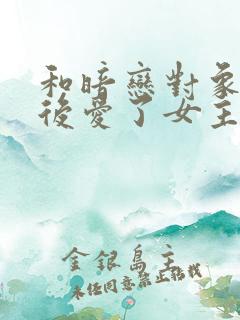 和暗戀對象
後愛了女主
金銀島主
未經同意禁止轉載